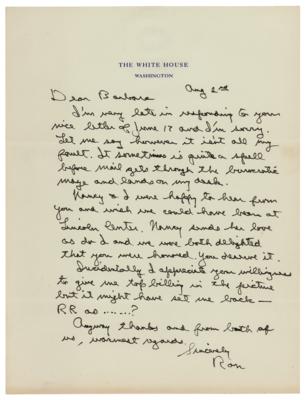 THE WHITE HOUSE
WASHINGTON
Aug 2nd
Dear Barbara
I'm very late in responding to your
nice letter of June 17 and I'm sorry.
Let me say however it isn't all my
fault. It sometimes is quite a spell
before mail gets through the bureaucratic
maze and lands on my desk.
Nancy & I were happy to hear from
you and wish we could have been at
Lincoln Center. Nancy sends her love
as do I and we were both delighted
that you were honored. You deserve it.
Incidentally I appreciate your willingness
to give me top billing in the picture
but it might have set me back —
RR as .......?
Anyway thanks and from both of
us, warmest regards.
Sincerely
Ron